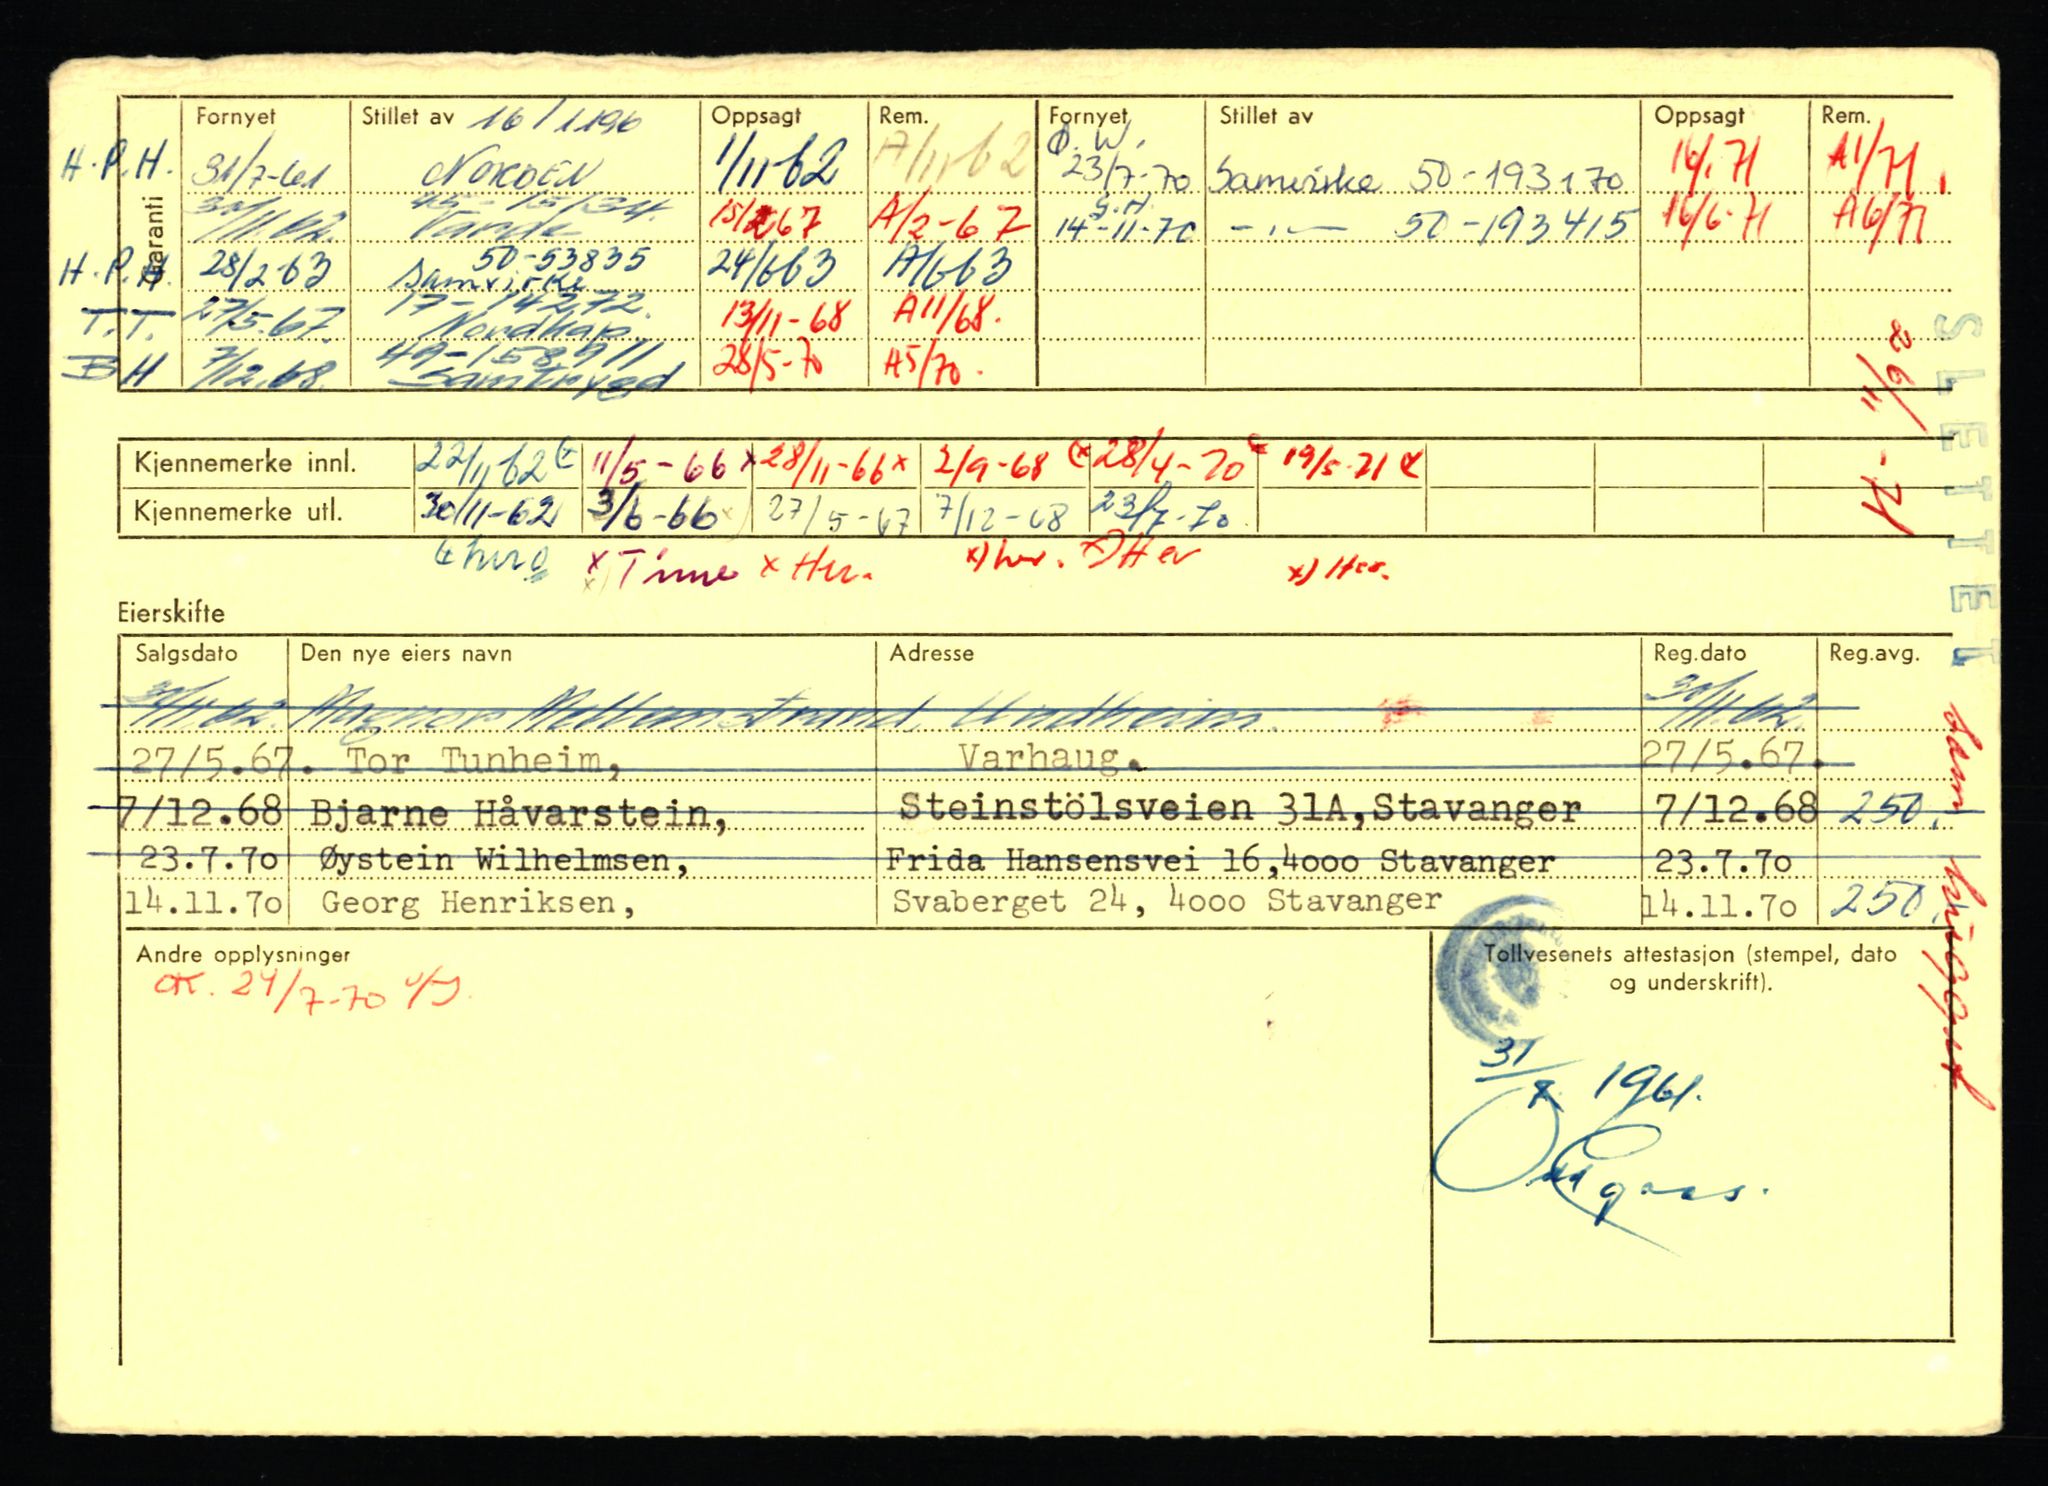 Garanti
Fornyet Stillet av 16/1196 Oppsagt Rem. Fornyet Stillet av Oppsagt Rem.
H.P.H. 31/7-61 NORDEN 1/11-62 A/11-62 Ø.W. 23/7-70 Samvirke 50-193170 16/1-71 A1/71.
30/11.62. 45-15134. Varde 15/2-67 A/2-67 G.H. 14-11-70 -"- 50-193415 16/6-71 A6/71
H.P.H. 28/2-63 50-53835 Samvirke 24/6-63 A/6-63
T.T. 27/5.67. 17-14272. Nordkap 13/11-68 A11/68.
BH 7/12.68. 49-158911 Samtrygd 28/5-70 A5/70.
Kjennemerke innl. 22/11-62 11/5-66 x 28/11-66 x 2/9-68 28/4-70 19/5-71
Kjennemerke utl. 30/11-62 3/6-66 27/5-67 7/12-68 23/7-70
x Time x Her. x) her. x) Her x) Her.
Eierskifte
Salgsdato Den nye eiers navn Adresse Reg.dato Reg.avg.
30/11.62. Magnor Undheim. 30/11.62.
27/5.67. Tor Tunheim, Varhaug. 27/5.67.
7/12.68 Bjarne Håvarstein, Steinstölsveien 31A, Stavanger 7/12.68 250.
23.7.70 Øystein Wilhelmsen, Frida Hansensvei 16, 4000 Stavanger 23.7.70
14.11.70 Georg Henriksen, Svaberget 24, 4000 Stavanger 14.11.70 250.
Andre opplysninger
OK. 24/7-70
Tollvesenets attestasjon (stempel, dato
og underskrift).
31/7 1961.
SLETTET
26/11-71
som hugget